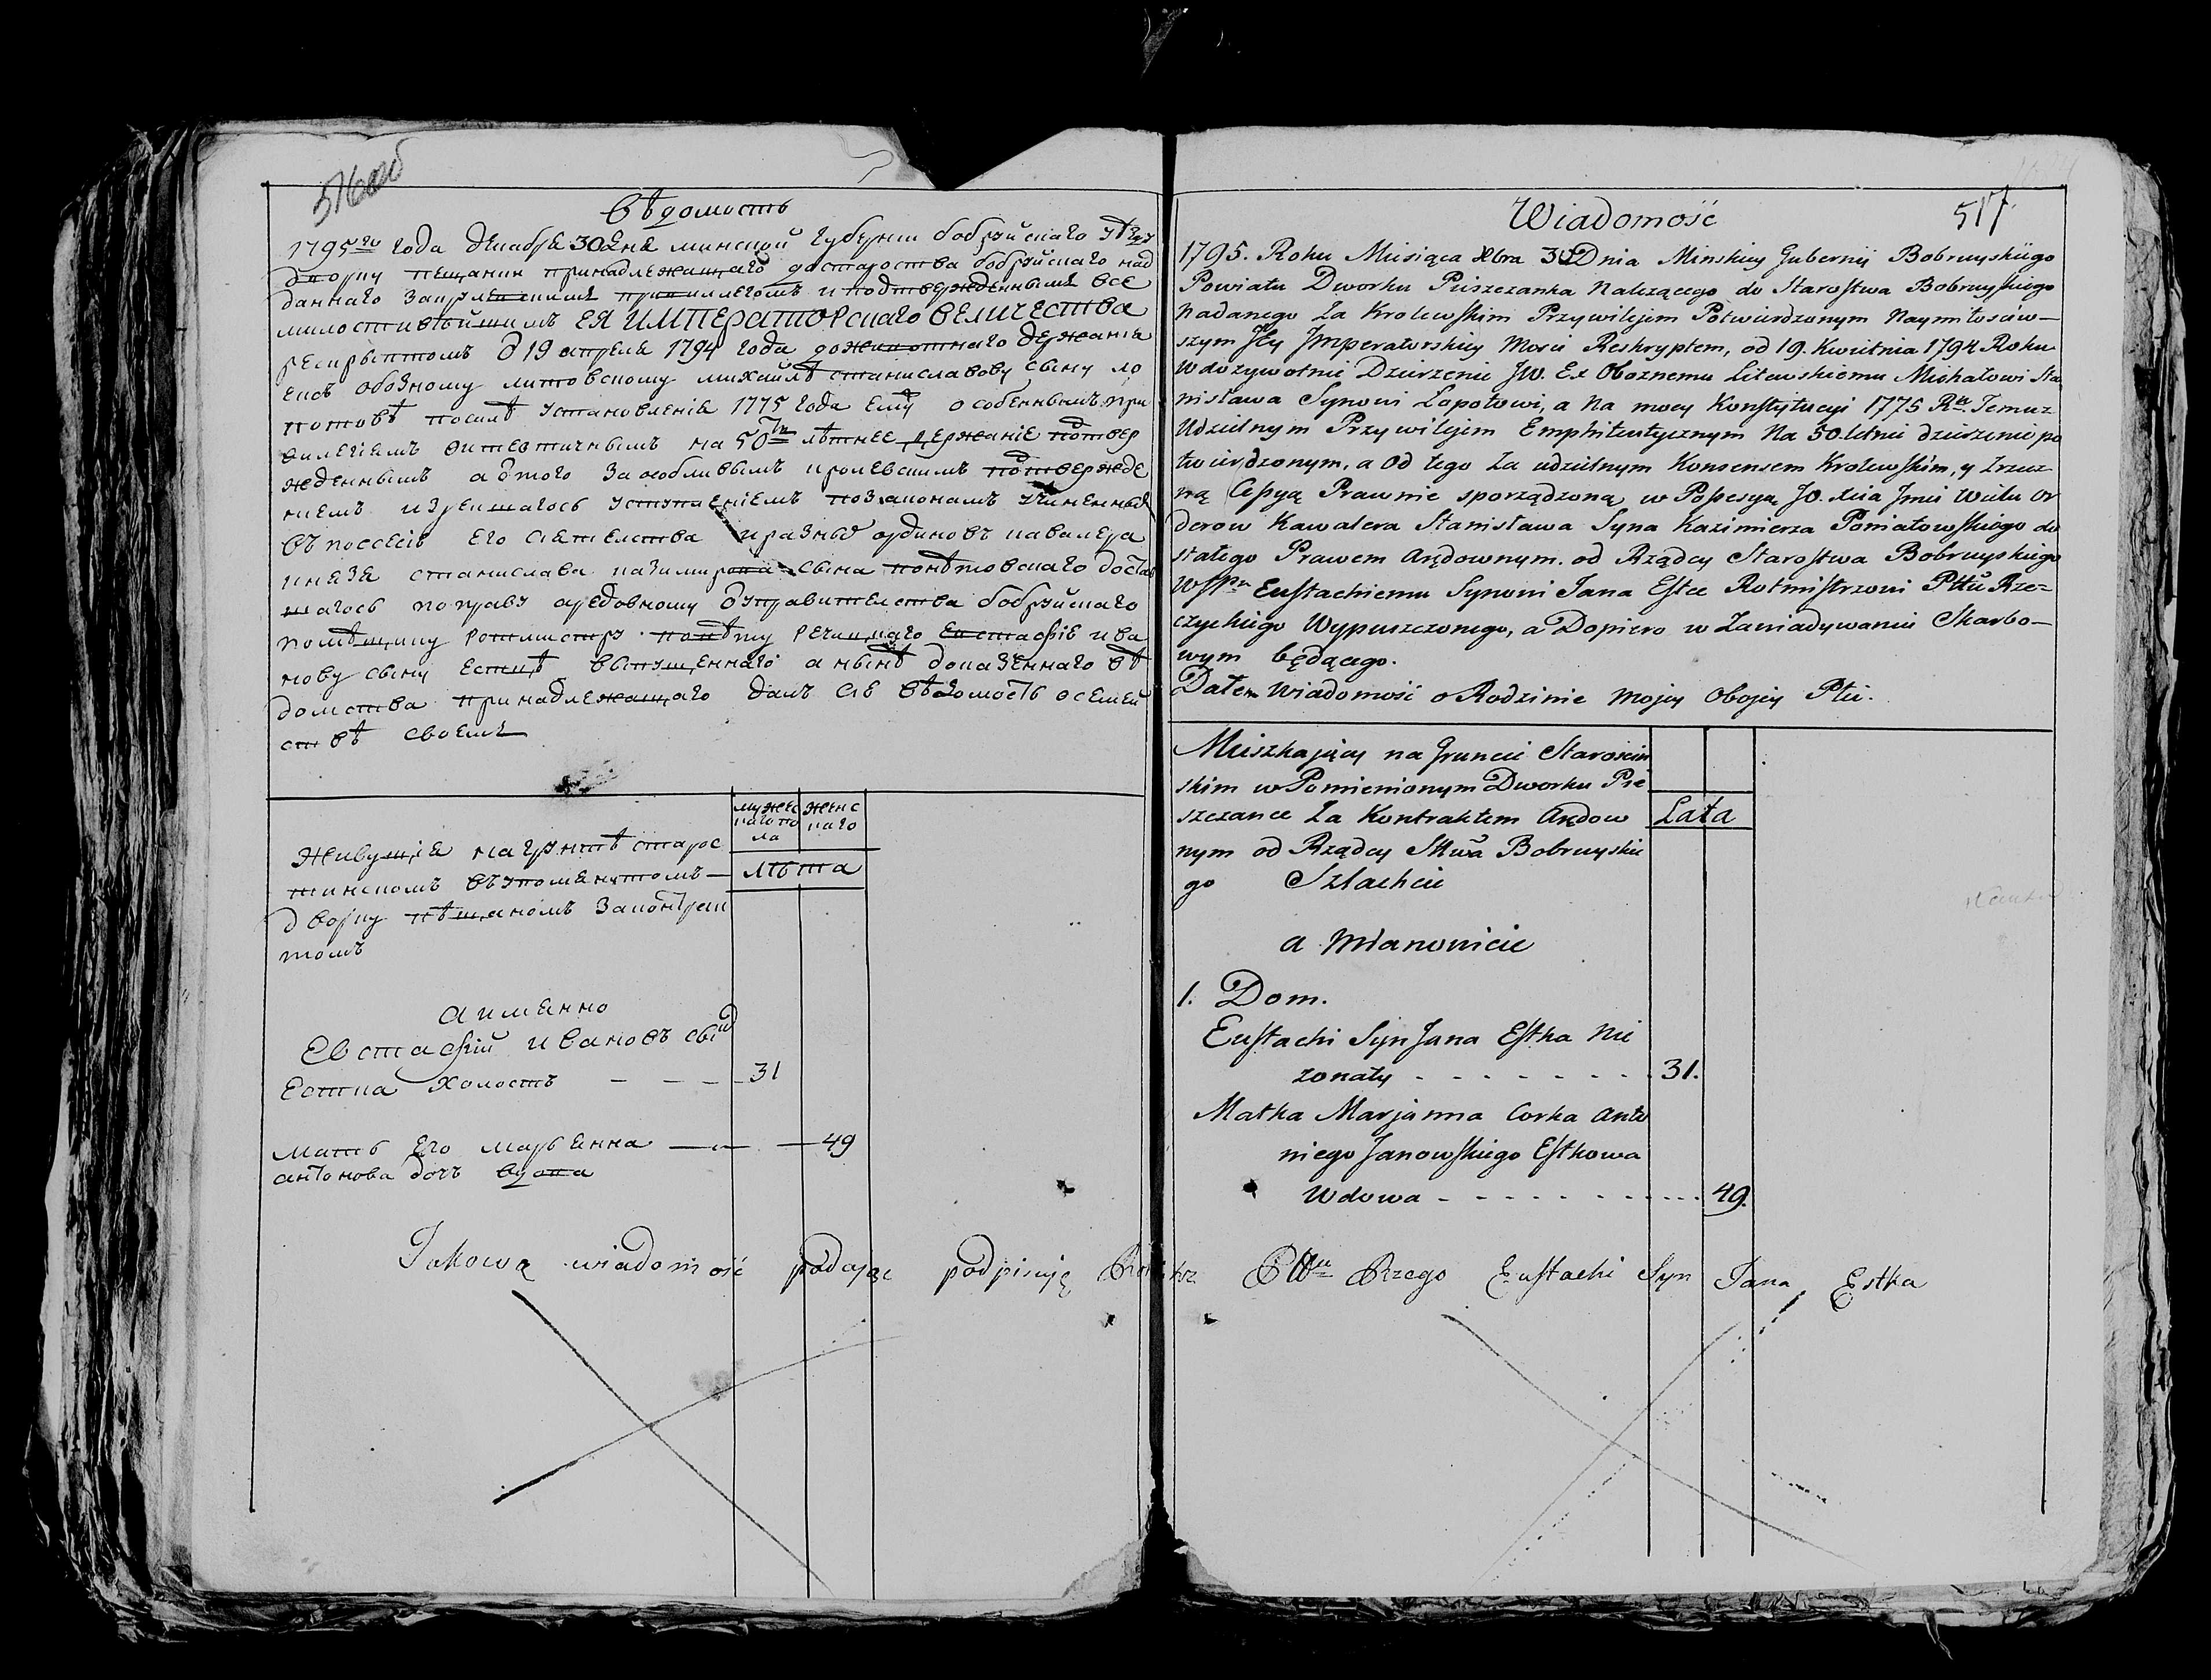 516об
Вѣдомость
1795го года декабря 30 дня минской губернии бобруйскаго
дворку пещанки принадлежащаго до староства бобруйскаго над
даннаго за привилегомъ и подтвержденнымъ все
милостивѣйшимъ ЕЯ ИМПЕРАТОРСКАГО ВЕЛИЧЕСТВА
рескрыптомъ 19 апреля 1794 года до животнаго держания
обозному литовскому михайлѣ станиславову сыну ло
потовѣ посилѣ установления 1775 года ему особеннымъ при
вилегиемъ на 50 лѣтнее держание подтвер
жденнымъ а отого за особливымъ кролевскимъ подтвержде
ниемъ уступлениемъ по законамъ учиненный
въ поссесия его сиятелства и разныхъ ординовъ кавалера
князя станислава казимирова сына понятовскаго достав
шагось по праву арендовному управителства бобруйскаго
помѣщику ротмистру повѣту речицкаго евстафию ива
нову сыну естцѣ выпущеннаго а нынѣ до казеннаго вѣ
домства принадлежащаго далъ сия вѣдомость о семей
ствѣ своемъ
мужес женс
каго по каго
ла
Живущия на грунтѣ старос
тинскомъ въ упомянутомъ —
дворку пѣщаномъ за контрак
томъ
лѣта
а имянно
Евстафий ивановъ сы
Естка холостъ — — — 31
мать его марьянна — — — 49
антонова дочь вдова
Takową wiadomość podając podpisuję Rotmistrz Pttu Rzego Eustachi Syn Jana Estka
517
Wiadomość
1795. Roku Miesiąca Xbra 30 Dnia Minskiey Gubernij Bobruyskiego
Powiatu Dworku Piszczanka Należącego do Starostwa Bobruyskiego
Nadanego Za Krolewskim Przywilejem Potwierdzonym Naymiłosciw—
szym Jey Jmperatorskiey Mosci Reskryptem, od 19. Kwietnia 1794 Roku
W dożywotnie Dzierżenie JW. Ex Oboznemu Litewskiemu Michałowi Sta
nisława Synowi Łopotowi, a Na mocy Konstytucyi 1775 Rku Temuż
Udzielnym Przywilejem Emphiteutycznym Na 50. letnie dzierżenie po
twierdzonym, a od tego Za udzielnym Konsensem Krolewskim, y Zrzecz
ną Cessyą Prawnie sporządzoną w Possesyą JO. Xcia Jmci Wielu Or
derow Kawalera Stanisława Syna Kazimierza Poniatowskiego do
stałego Prawem Arędownym. od Rządcy Starostwa Bobruyskiego
Eustachiemu Synowi Jana Estce Rotmistrzowi Pttu Rze=
czyckiego Wypuszczonego, a Dopiero w Zawiadywaniu Skarbo—
wym będącego.
Dałem Wiadomość o Rodzinie Mojey Obojey Płci.
Mieszkający na Gruncie Starościn
skim w Pomienionym Dworku Pie
szczance Za Kontraktem Arędow
nym od Rządcy Sttwa Bobruyskie
go Szlachcic
Lata
a Mianowicie
1. Dom.
Eustachi Syn Jana Estka Nie
zonaty - - - - - - - - 31.
Matka Marjanna Corka Anto
niego Janowskiego Estkowa
Wdowa - - - - - - - - 49.